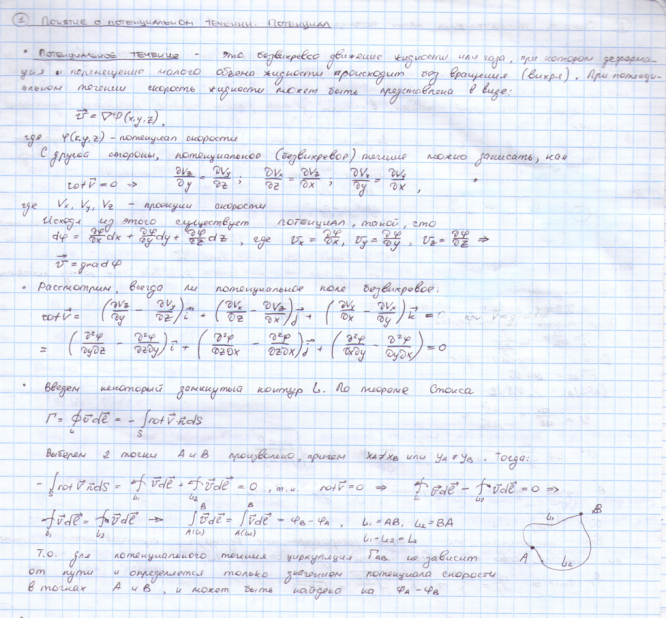 ① Понятие о потенциальном течении. Потенциал
• Потенциальное течение - это безвихревое движение жидкости или газа, при котором деформа-
ция и перемещение малого объема жидкости происходит без вращения (вихря). При потенци-
альном течении скорость жидкости может быть представлена в виде:
v⃗ = ∇φ(x,y,z),
где φ(x,y,z) - потенциал скорости
С другой стороны, потенциальное (безвихревое) течение можно записать, как
rot v⃗ = 0 ⇒ ∂Vz/∂y = ∂Vy/∂z ; ∂Vx/∂z = ∂Vz/∂x ; ∂Vx/∂y = ∂Vy/∂x ,
где Vx, Vy, Vz - проекции скорости
Исходя из этого существует потенциал, такой, что
dφ = ∂φ/∂x dx + ∂φ/∂y dy + ∂φ/∂z dz , где Vx = ∂φ/∂x, Vy = ∂φ/∂y, Vz = ∂φ/∂z ⇒
v⃗ = grad φ
• Рассмотрим, всегда ли потенциальное поле безвихревое:
rot v⃗ = (∂Vz/∂y - ∂Vy/∂z) i⃗ + (∂Vx/∂z - ∂Vz/∂x) j⃗ + (∂Vx/∂y - ∂Vy/∂x) k⃗ =
= (∂²φ/∂y∂z - ∂²φ/∂z∂y) i⃗ + (∂²φ/∂z∂x - ∂²φ/∂z∂x) j⃗ + (∂²φ/∂x∂y - ∂²φ/∂y∂x) = 0
• Введем некоторый замкнутый контур L. По теореме Стокса
Γ = ∮L v⃗ dl⃗ = - ∫S rot v⃗ · n⃗ dS
Выберем 2 точки A и B произвольно, причем xA≠xB или yA≠yB. Тогда:
- ∫S rot v⃗ n⃗ dS = ∮L1 v⃗ dl⃗ + ∮L2 v⃗ dl⃗ = 0 , т.к. rot v⃗ = 0 ⇒ ∮ v⃗ dl⃗ - ∮L2 v⃗ dl⃗ = 0 ⇒
∮L1 v⃗ dl⃗ = ∮L2 v⃗ dl⃗ ⇒ ∫A(L1)B v⃗ dl⃗ = ∫A(L2)B v⃗ dl⃗ = φB - φA , L1 = AB, L2 = BA
L1 B
A L2
Т.о. для потенциального течения циркуляция ΓAB не зависит
от пути и определяется только значением потенциала скорости
в точках A и B, и может быть найдена из φA - φB